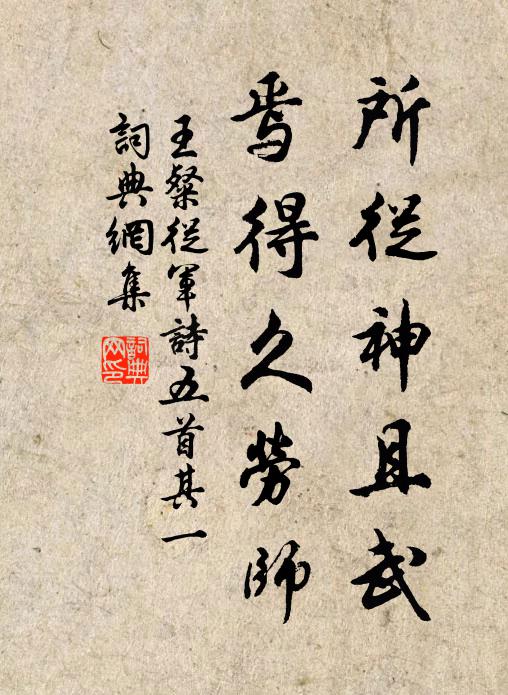 所從神且武
焉得久勞師
王粲從軍詩五首其一
詞典網集
詞典
网印